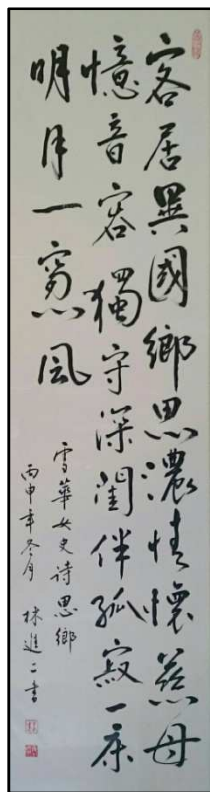 客居異國鄉思濃情懷慈母
憶音容獨守深閨伴孤寂一床
明月一窗風
雪華女史诗思鄉
丙申年冬月 林進二書